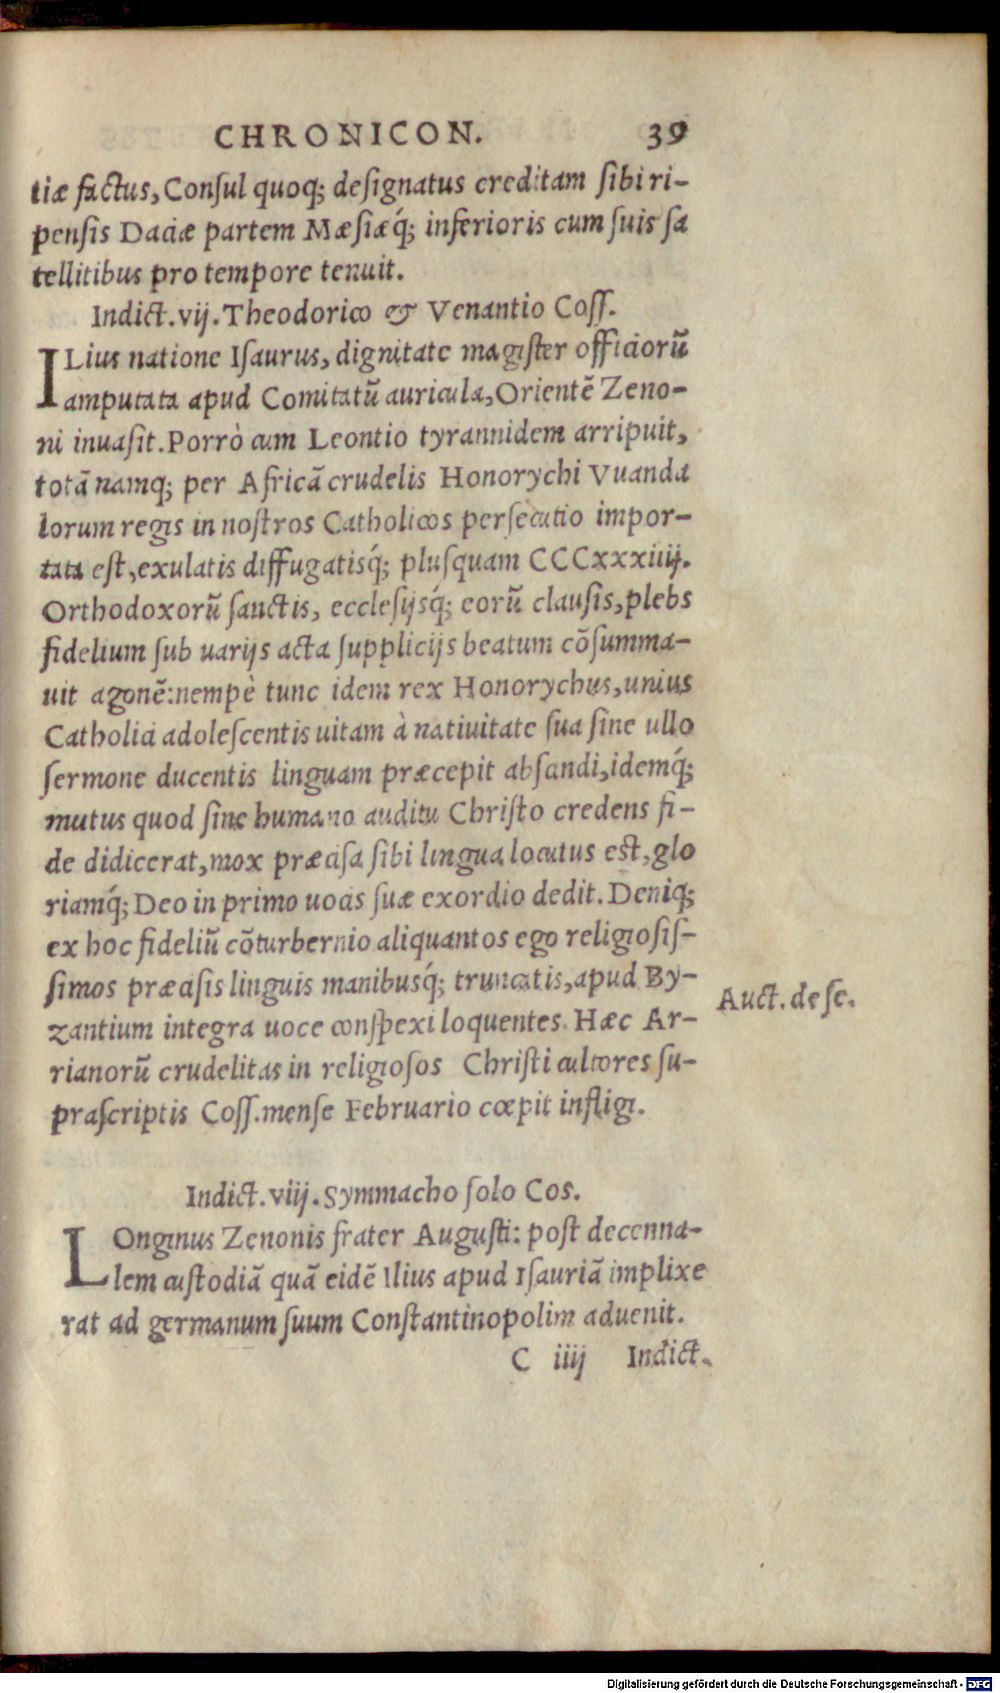 CHRONICON. 39
tiæ factus, Consul quoq; designatus creditam sibi ri-
pensis Daciæ partem Mæsiæq́; inferioris cum suis sa
tellitibus pro tempore tenuit.
Indict.vij.Theodorico & Venantio Coss.
ILius natione Isaurus, dignitate magister officiorũ
amputata apud Comitatũ auricula, Orientẽ Zeno-
ni inuasit. Porrò cum Leontio tyrannidem arripuit,
totã namq; per Africã crudelis Honorychi Vuanda
lorum regis in nostros Catholicos persecutio impor-
tata est, exulatis diffugatisq́; plusquam CCCxxxiiij.
Orthodoxorũ sanctis, ecclesijsq́; eorũ clausis, plebs
fidelium sub uarijs acta supplicijs beatum cõsumma-
uit agonẽ: nempè tunc idem rex Honorychus, unius
Catholici adolescentis uitam à natiuitate sua sine ullo
sermone ducentis linguam præcepit abscindi, idemq́;
mutus quod sine humano auditu Christo credens fi-
de didicerat, mox præcisa sibi lingua locutus est, glo
riamq́; Deo in primo uocis suæ exordio dedit. Deniq;
ex hoc fideliũ cõturbernio aliquantos ego religiosis-
simos præcisis linguis manibusq́; truncatis, apud By-
zantium integra uoce conspexi loquentes. Hæc Ar-
Auct. de se.
rianorũ crudelitas in religiosos Christi cultores su-
prascriptis Coss. mense Februario cœpit infligi.
Indict.viij. Symmacho solo Cos.
LOnginus Zenonis frater Augusti: post decenna-
lem custodiã quã eidẽ Ilius apud Isauriã implixe
rat ad germanum suum Constantinopolim aduenit.
C iiij Indict.
Digitalisierung gefördert durch die Deutsche Forschungsgemeinschaft - DFG